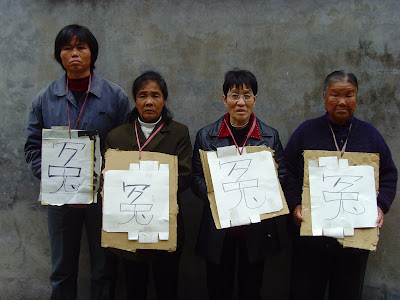 冤
冤
冤
冤